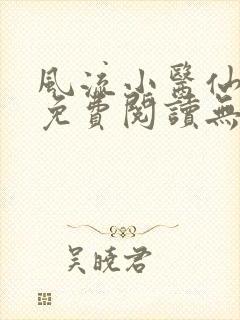 風流小醫仙
免費閱讀無
吳曉君